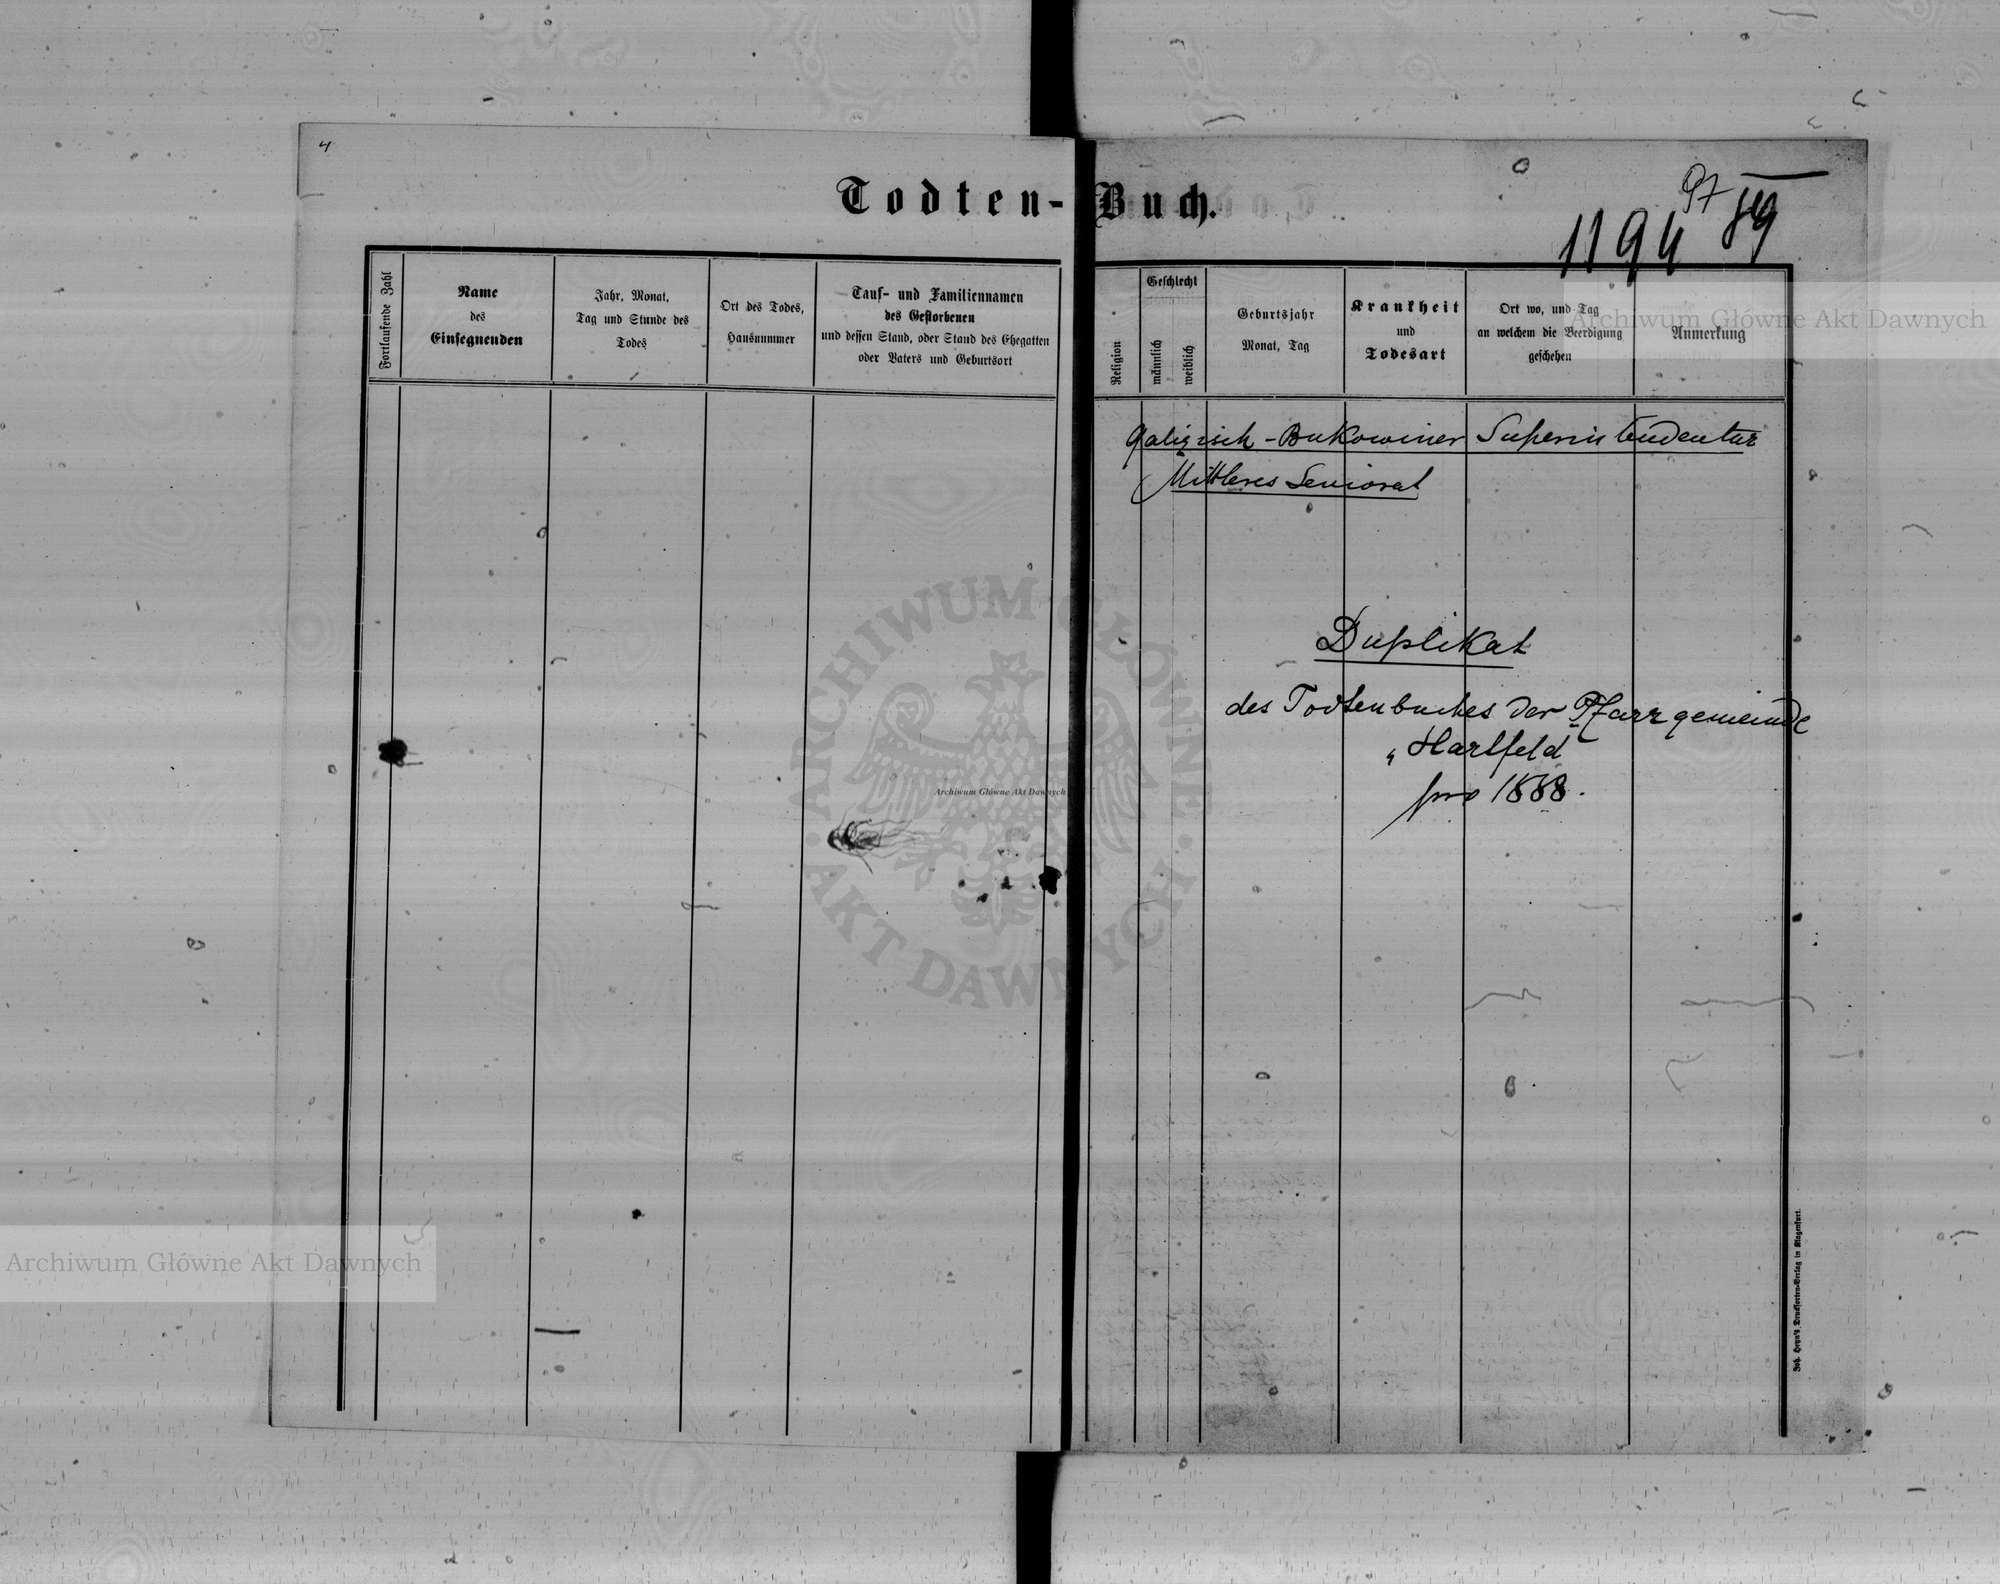 4
Todten-Buch.
97
1194
89
Fortlaufende Zahl
Name
des
Einsegnenden
Jahr, Monat,
Tag und Stunde des
Todes
Ort des Todes,
Hausnummer
Tauf- und Familiennamen
des Gestorbenen
und dessen Stand, oder Stand des Ehegatten
oder Vaters und Geburtsort
Religion
Geschlecht
männlich
weiblich
Geburtsjahr
Monat, Tag
Krankheit
und
Todesart
Ort wo, und Tag
an welchem die Beerdigung
geschehen
Anmerkung
Archiwum Główne Akt Dawnych
Galizisch-Bukowiner Superintendentur
Mittleres Seniorat
Duplikat
des Todtenbuches der Pfarrgemeinde
„Hartfeld"
pro 1888.
ARCHIWUM GŁÓWNE AKT DAWNYCH
Archiwum Główne Akt Dawnych
Archiwum Główne Akt Dawnych
Joh. Heyn's Drucksorten-Verlag in Klagenfurt.